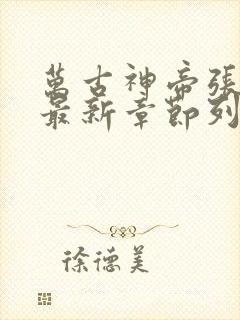 萬古神帝張
最新章節列
徐德美